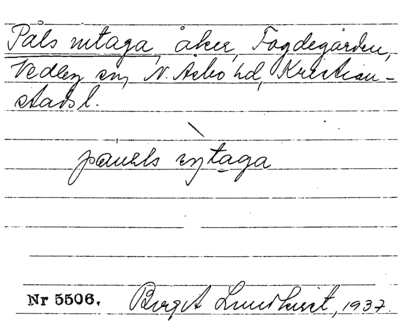 Påls nytaga, åker, Fogdegården,
Vedby sn, N. Åsbo hd, Kristian-
stads l.
nytaga
Nr 5506. Birgit Lundkvist, 1937.